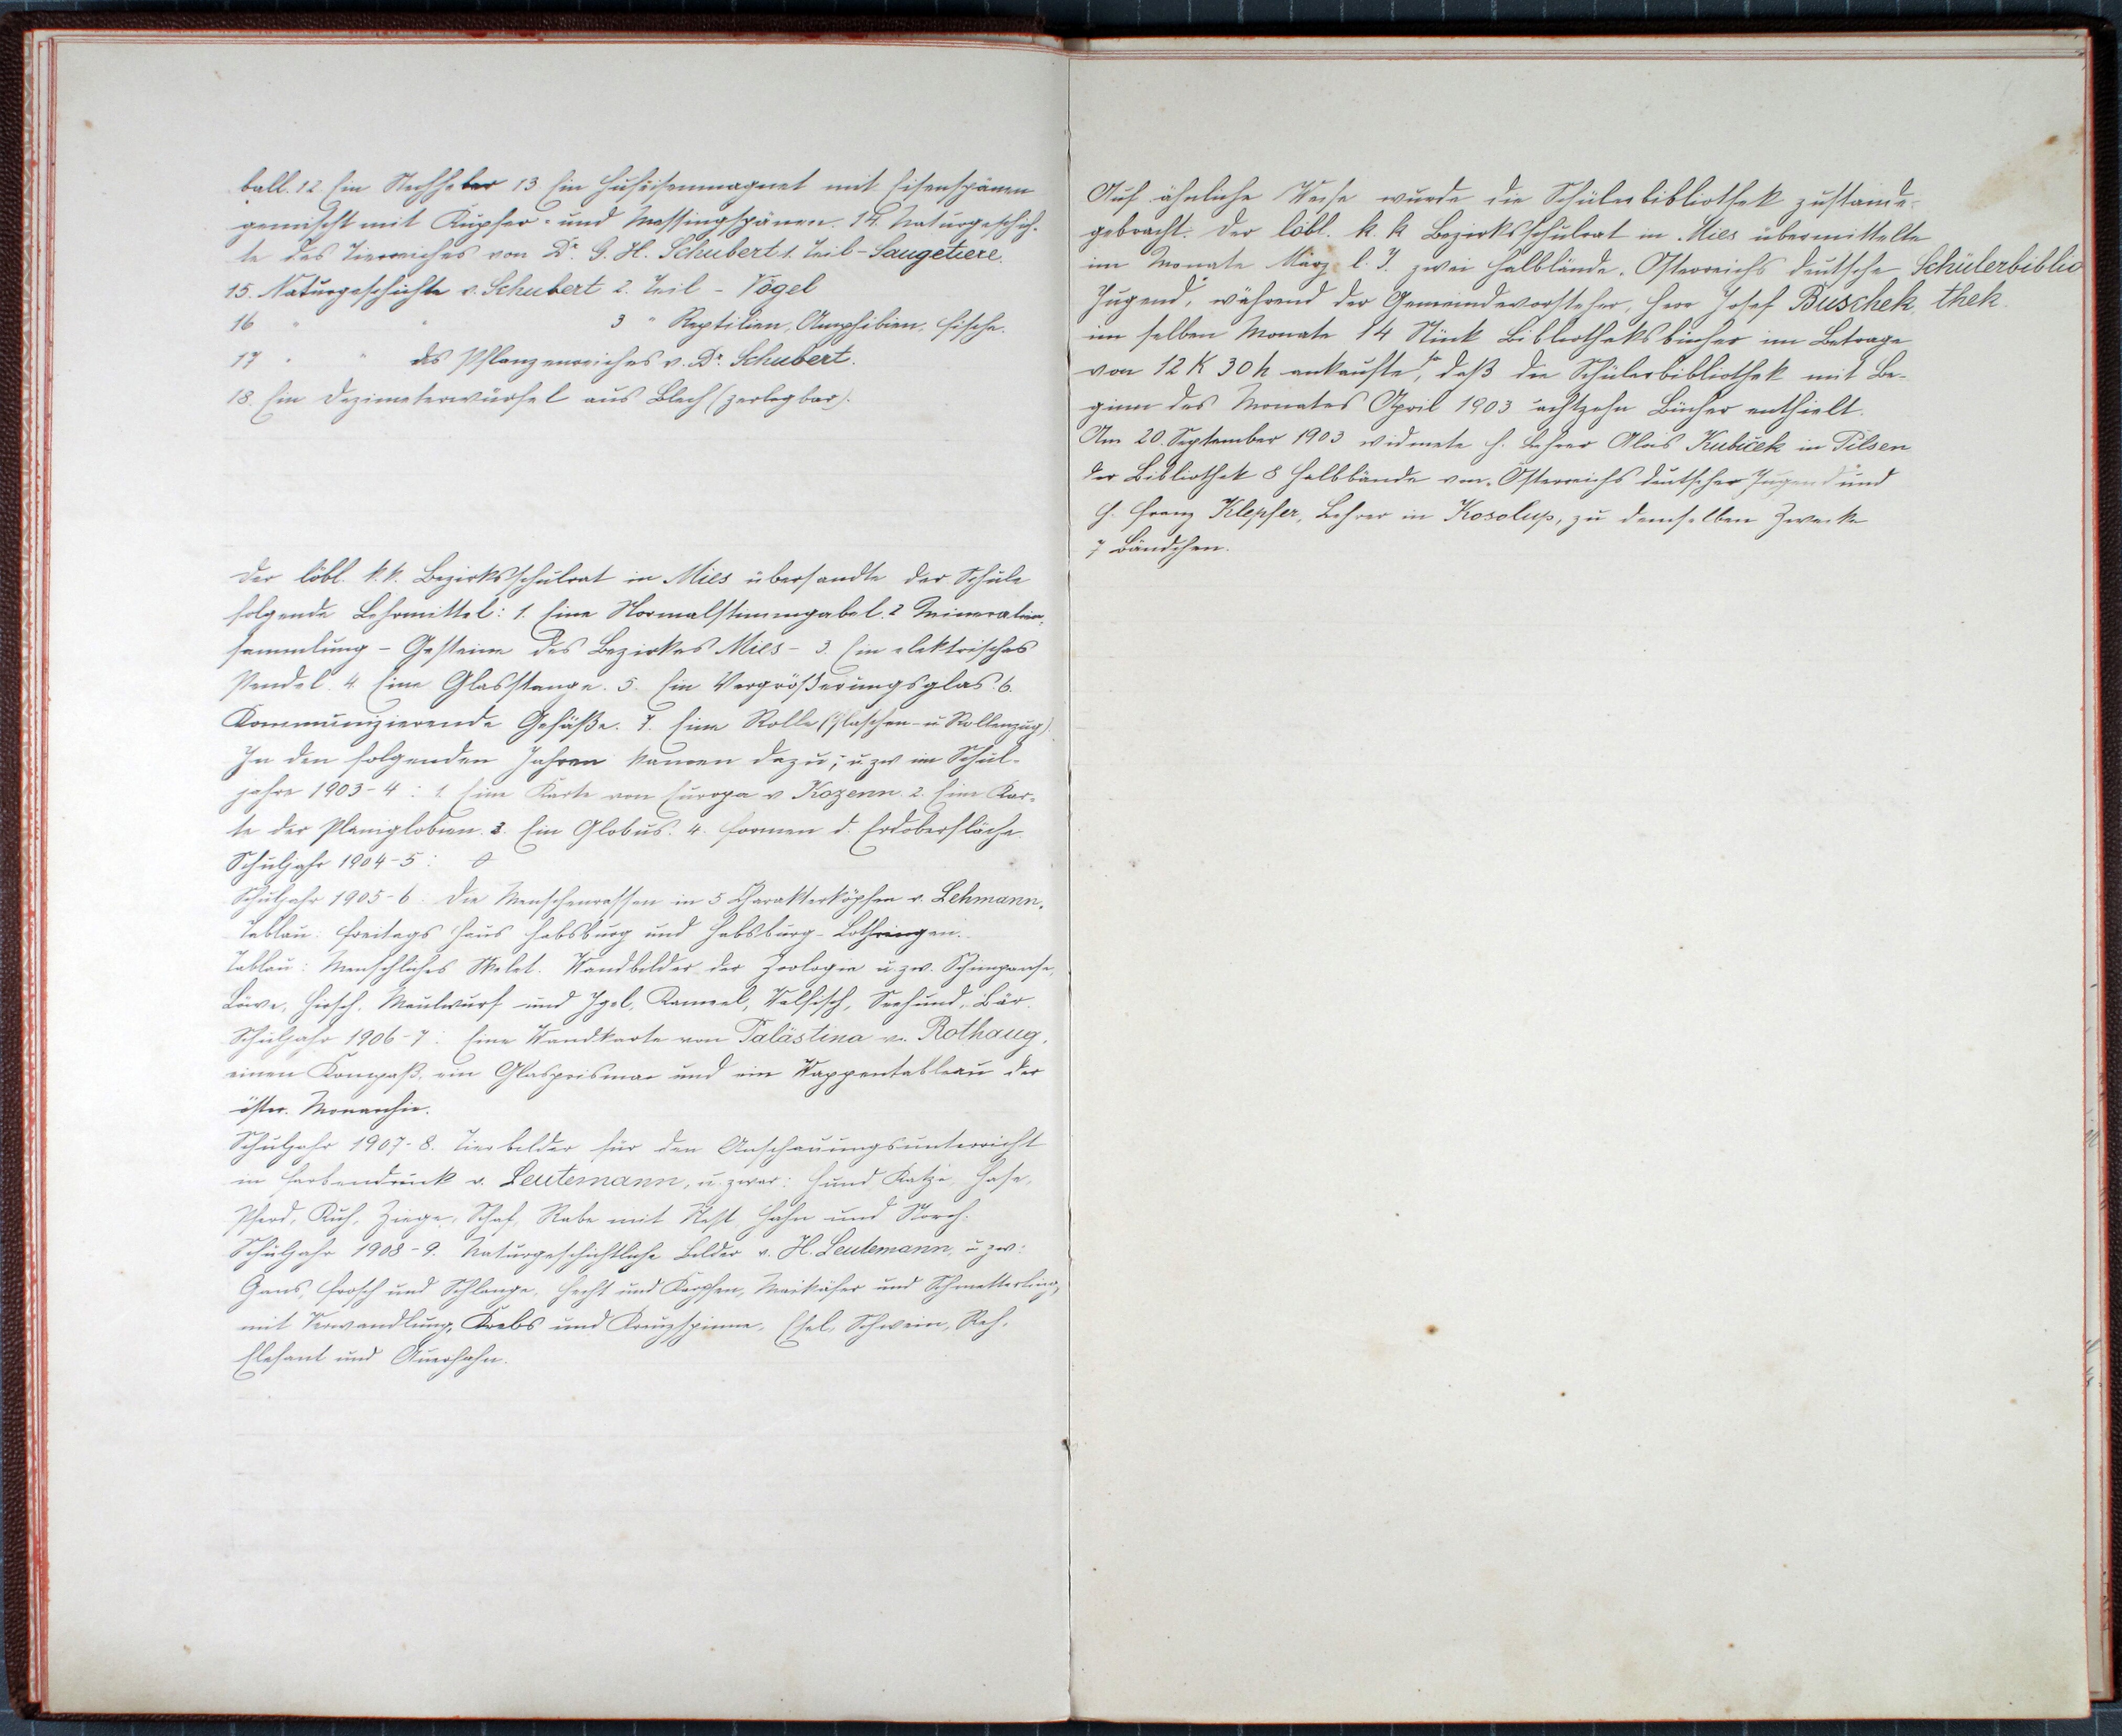 ball. 12. Ein Stechheber 13. Ein Hufeisenmagnet mit Eisenspänen
gemischt mit Kupfer- und Messingspänen. 14. Naturgeschich-
te des Tierreiches von Dr. G. H. Schubert 1. Teil - Saugetiere.
15. Naturgeschichte v. Schubert 2. Teil - Vögel
16 " " 3 " Reptilien, Amphibien, Fische.
17 " " des Pflanzenreiches v. Dr. Schubert.
18. Ein Dezimeterwürfel aus Blech (zerlegbar).
Der löbl. k. k. Bezirksschulrat in Mies übersandte der Schule
folgende Lehrmittel: 1. Eine Normalstimmgabel. 2 Mineralien-
sammlung - Gesteine des Bezirkes Mies - 3. Ein elektrisches
Pendel. 4. Eine Glasstange. 5. Ein Vergrößerungsglas. 6.
Kommunizierende Gefäße. 7. Eine Rolle (Flaschen- u Rollenzug).
In den folgenden Jahren kamen dazu; u. zw im Schul-
jahre 1903-4: 1. Eine Karte von Europa v Kozenn. 2. Eine Kar-
te der Planigloben. 3. Ein Globus. 4. Formen d. Erdoberfläche.
Schuljahr 1904-5:
Schuljahr 1905-6: Die Menschenrassen in 5 Charakterköpfen v. Lehmann.
Tablau: Freitags Haus Habsburg und Habsburg-Lothringen.
Tablau: Menschliches Skelet. Wandbilder der Zoologie u. zw. Schimpanse,
Löwe, Hirsch, Maulwurf und Igel, Kameel, Walfisch, Seehund, Bär.
Schuljahr 1906-7: Eine Wandkarte von Palästina v. Rothaug,
einen Kompaß, ein Glasprisma und ein Wappentableau der
öster. Monarchie.
Schuljahr 1907-8. Tierbilder für den Anschauungsunterricht
in Farbendruck v. Leutemann, u. zwar: Hund, Katze, Hase,
Pferd, Kuh, Ziege, Schaf, Rabe mit Nest, Hahn und Storch.
Schuljahr 1908-9. Naturgeschichtliche Bilder v. H. Leutemann, u zw:
Gans, Frosch und Schlange, Hecht und Karpfen, Maikäfer und Schmetterling,
mit Verwandlung, Krebs und Kreuzspinne, Esel, Schwein, Reh,
Elefant und Auerhahn.
Auf ähnliche Weise wurde die Schülerbibliothek zustande-
gebracht. Der löbl. k. k Bezirksschulrat in Mies übermittelte
im Monate März l. J. zwei Halbbände „Österreichs deutsche
Jugend", während der Gemeindevorsteher, Herr Josef Buschek,
im selben Monate 14 Stück Bibliotheksbücher im Betrage
von 12 K 30 h ankaufte, so daß die Schülerbibliothek mit Be-
ginn des Monates April 1903 achtzehn Bücher enthielt.
Am 20. September 1903 widmete H. Lehrer Alois Kubiček in Pilsen
der Bibliothek 8 Halbbände von „Österreichs deutscher Jugend" und
H. Franz Klepfer, Lehrer in Kosolup, zu demselben Zwecke
7 Bändchen.
Schülerbiblio
thek.